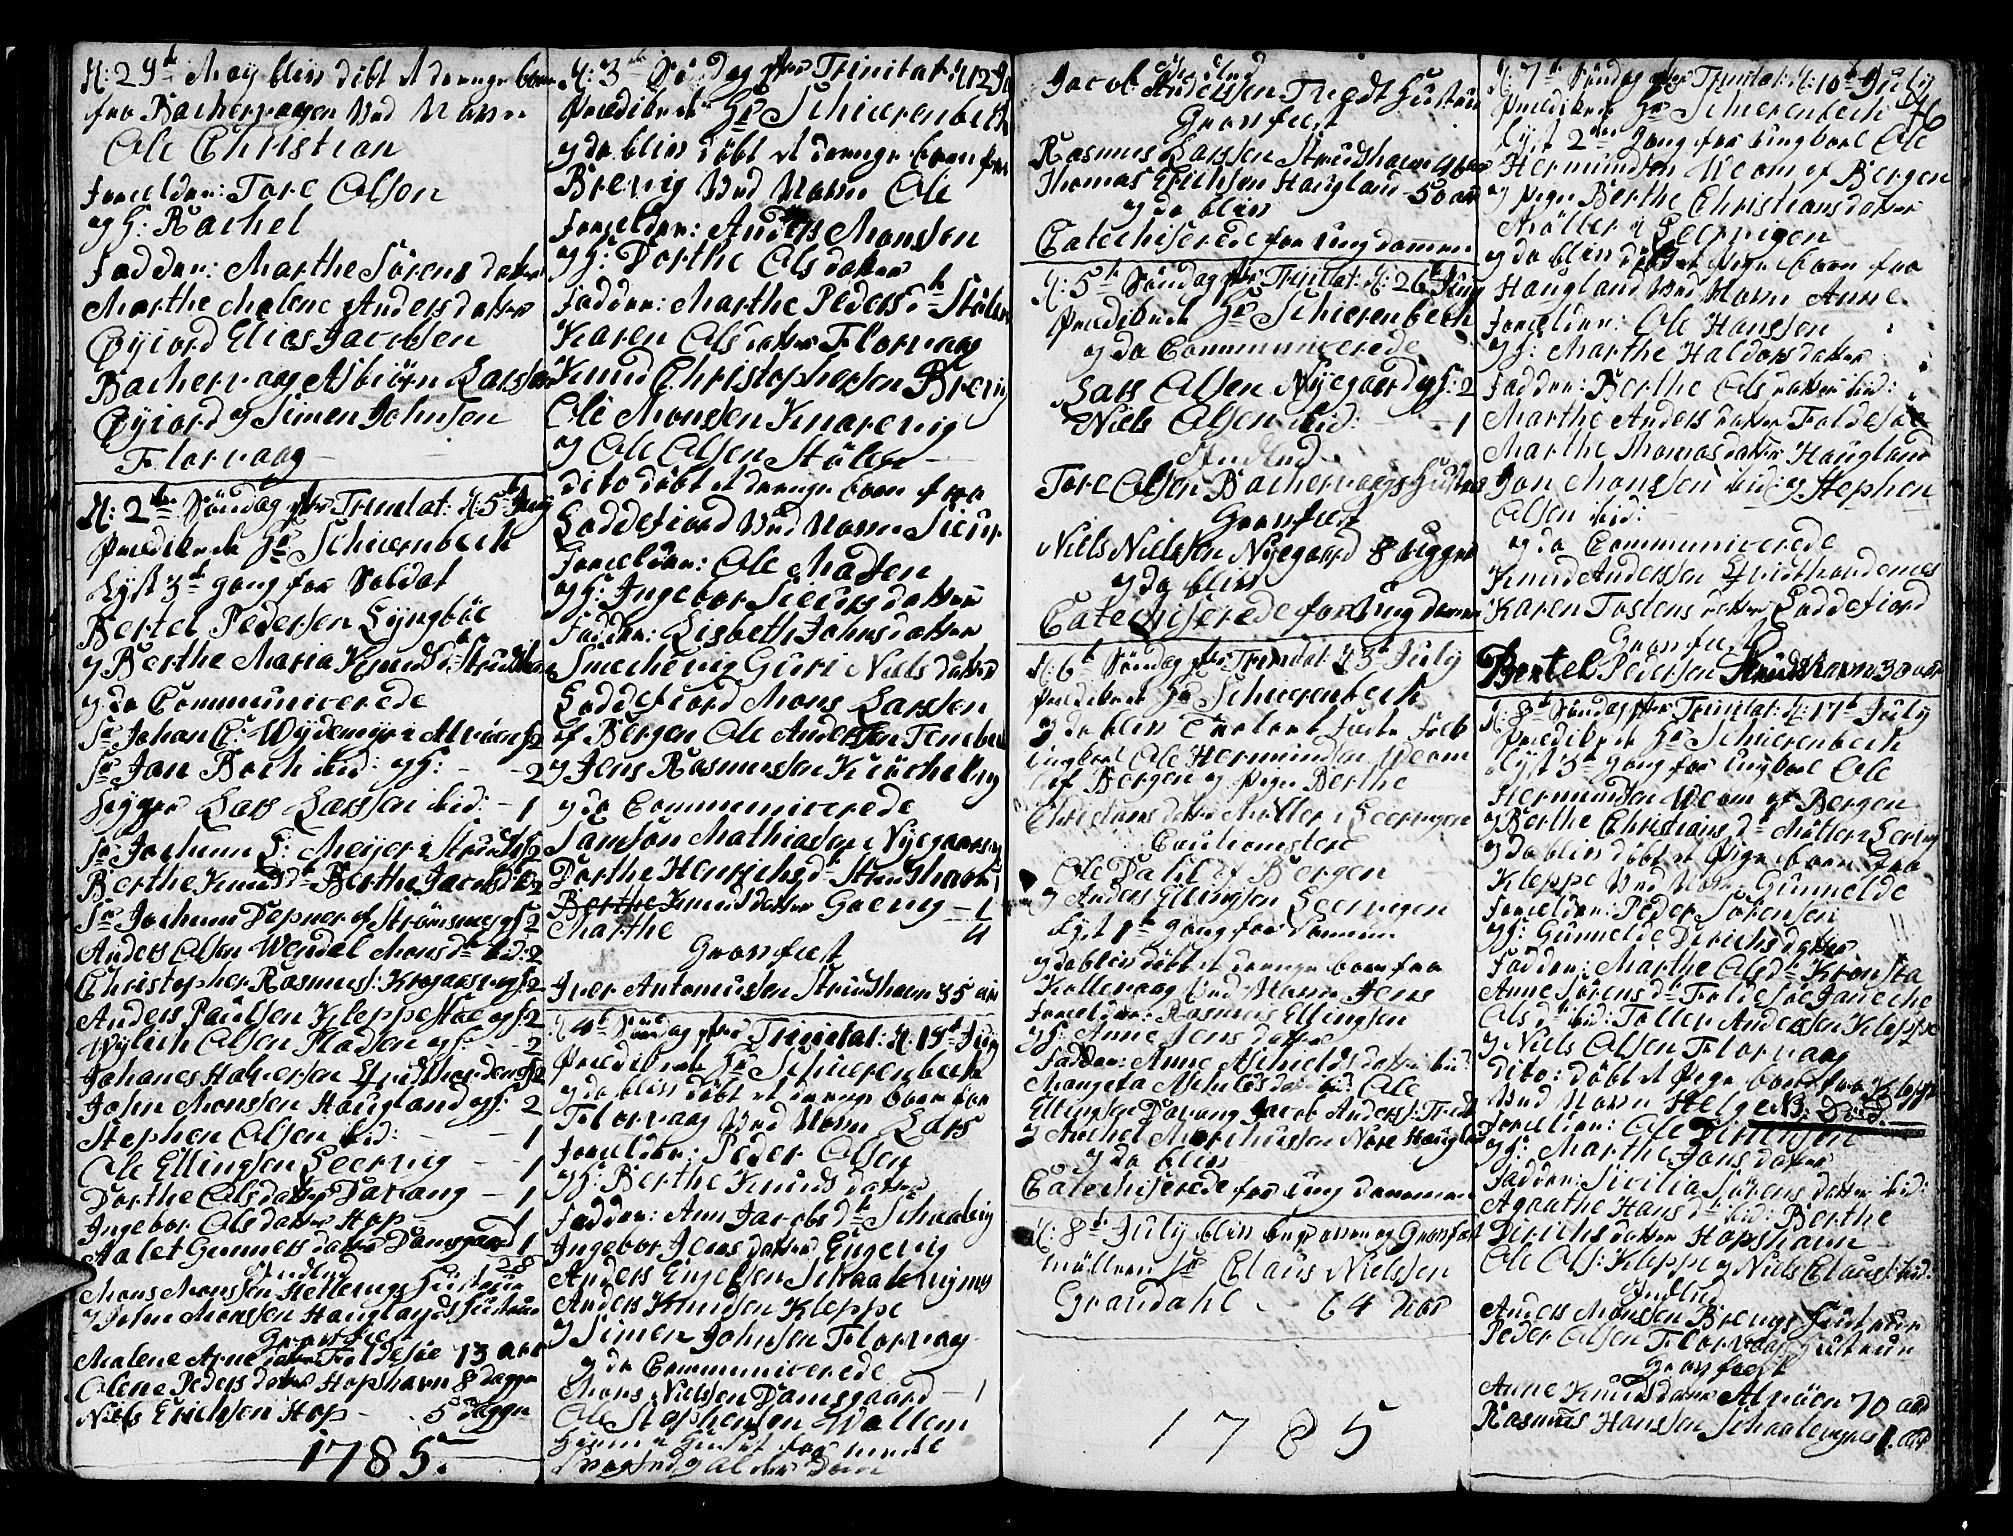 d: 29de Maÿ blev döbt et drenge barn
fra Bachervogen ved Navn
Ole Christian
Forældre: Tore Olsen
og H: Rachel
Fadder: Marthe Sörens datter
Marthe Malene Anders datter
Öyiord Elias Jacobsen
Bachervaag Asbiörn Larssen
Öyiord og Simen Johnsen
Florvaag
d: 2den Söndag efter Trinitat: d: 5te Juny
Prædikede Hr Schierenbeck
Lyst 3de gang for Soldat
Bertel Pedersen Lyngböe
og Berthe Maria Knudsdr Strudshavn
og da Communicerede
Sr Johan C: Wydemyr i Alvöen 2
Sr Jan Boch ibid: og H: 2
Lars Larssen ibid: 1
Sr Jochum L: Meyer i Strudsh 2
Berthe Knudsdr Berthe Jacobsdr 2
Sr Jochum Depner af Strömsnes 2
Anders Olsen Wendel Monsdr ibid: 2
Christopher Rasmuss: Krogaas og H: 2
Anders Paulsen Kleppestöe og H: 2
Olsen Fladsen og H: 2
Johanes Halversen Qvidthordenes 2
John Monssen Haugland og H: 2
Stephen Olsen ibid: 1
Ole Ellingsen Leervig 1
Dorthe Olsdatter Davang 1
Ingebor Olsdatter Hop 1
Aalet Gunners datter Damsgaard 1
28
Indled
Mons Monssen Hettevigs Hustrue
og John Monssen Hauglands Hustrue
Gravfæst
Malene Arne datter Foldesöe 13 aar
Olene Peders datter Hopshavn 8 dagge
Niels Erichsen Hop 5 dagge
1785.
d: 3de Söndag efter Trinitat: d: 12 Ju
Prædikede Hr Schierenbeck
og da blev döbt et drenge barn fra
Brevig ved Navn Ole
Forældre: Anders Monssen
og H: Dorthe Olsdatter
Fadder: Marthe Pedersdr Stölen
Karen Olsdatter Florvaag
Knud Christophersen Brevig
Ole Monssen Knarevig
og Ole Olsen Stölen
dito döbt et drenge barn fra
Loddefiord ved Navn Siur
Forældre: Ole Madsen
og H: Ingebor Siursdatter
Fadder: Lisbeth Johnsdatter
Smechevig Guri Nielsdatter
Loddefiord Mons Larssen
af Bergen Ole Andersen
og Jens Rasmussen
og da Communicerede
Samson Mathiadsen Nyegaard
Dorthe Henrichsdr Strudshavn 1
Berthe Knudsdatter Goevig 1
Marthe 4
Gravfæst
Iver Antonissen Strudshavn 35 aar
d: 4de Söndag efter Trinitat: d: 19de Juny
Prædikede Hr Schierenbeck
og da blev döbt et drenge barn fra
Florvaag ved Navn Lars
Forældre: Peder Olsen
og H: Berthe Knudsdatter
Fadder: Ann Jacobsdr Schaalevig
Ingebor Jensdatter Engevig
Anders Engelsen Schaalevignes
Anders Knudsen Kleppe
og Simen Johnsen Florvaag
og da Communicerede
Mons Nielssen Damsgaard 1
Ole Stephensen Wallem
Indled
Jacob Anderssen Tvedt Hustrue
Gravfæst
Rasmus Larssen Strudshavn
Thomas Erichsen Haugland 50 aar
og da blev
Catechiserede for ungdommen
d: 5te Söndag efter Trinitat: d: 26de Juny
Prædikede Hr Schierenbeck
og da Communicerede
Lars Olsen Nyegaard og H: 2
Niels Olsen ibid: 1
Indled
Tore Olsen Bachervaags Hustrue
Gravfæst
Niels Nielssen Nyegaard 8 uger
og da blev
Catechiserede for ungdommen
d: 6te Söndag efter Trinitat: d: 3de July
Prædikede Hr Schierenbeck
og da blev
ungkarl Ole Hermundsen Weom
af Bergen og Pige Berthe
Christians datter Möller i Leervigen
Cautionister
Ole Dahl af Bergen
og Anders Ellingsen Leervigen
Lyst 1ste gang for dennem
og da blev döbt et drenge barn fra
Kollevaag ved Navn Jens
Forældre: Rasmus Ellingsen
og H: Anne Jens datter
Fadder: Anne datter ibid:
Ole
Ellingsen Davang Jacob Anderss: Tvedt
og da blev
Catechiserede for ungdommen
d: 8de July blev og Gravfæst
Mölleren Sr Claus Nielssen
Grandahl 64 Aar
1785
46
d: 7de Söndag efter Trinitat: d: 10de July
Prædikede Hr Schierenbeck
Lyst 2den gang for ungkarl Ole
Hermundsen Weom af Bergen
og Pige Berthe Christians datter
Möller i Leervigen
og da blev döbt et Pige barn fra
Haugland ved Navn Anne
Forældre: Ole Hanssen
og H: Marthe Haldorsdatter
Fadder: Berthe Olsdatter ibid:
Marthe Andersdatter Foldesöe
Marthe Thomasdatter Haugland
Jon Monssen ibid: og Stephen
Olsen ibid:
og da Communicerede
Knud Anderssen Qvidthordenes
Karen Tostens datter Loddefiord
Gravfæst
Bertel Pedersen Strudshavn 30 aar
d: 8de Söndag efter Trinitat: d: 17de July
Prædikede Hr Schierenbeck
Lyst 3de gang for ungkarl Ole
Hermundsen Weom af Bergen
og Berthe Christiansdr Möller i Lervig
og da blev döbt et Pige barn fra
Kleppe ved Navn Gunnelde
Forældre: Peder Sörensen
og H: Gunnelde Dirichsdatter
Fadder: Marthe Olsdr Kronsta
Anne Sörensdr Foldesöe Janeche
Olsdr ibid: Toller Andersen Kleppe
og Niels Olsen Florvaag
dito: döbt et Pige barn fra Kleppe
ved Navn Helge NB. Död.
Forældre: Ole Dirichsen
og H: Marthe Jonsdatter
Fadder: Sivilia Sörens datter ibid:
Agaathe Hansdr ibid: Berthe
Dirichsdatter Hopshavn
Ole Ols: Kleppe og Niels Clauss: ibid:
Indled
Anders Monssen Brevigs Hustrue
Peder Olsen Florvaag Hustrue
Gravfæst
Anne Knudsdatter Alvöen 70 aar
Rasmus Hanssen Schaalevignes 1. aar